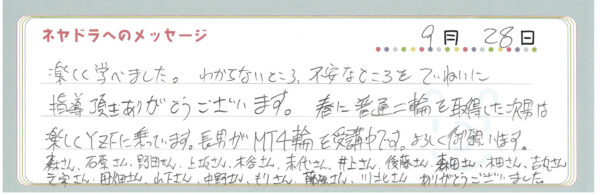 ネヤドラへのメッセージ 9月 28日
楽しく学べました。わからないところ、不安なところをていねいに
指導頂きありがとうございます。春に普通二輪を取得した次男は
楽しくYZFに乗っています。長男がMT4輪を受講中です。よろしく御願います。
森さん、石原さん、野田さん、上坂さん、木谷さん、末代さん、井上さん、後藤さん、森田さん、本田さん、吉丸さん
さん、田畑さん、山下さん、中野さん、もりさん、藤原さん、川北さん ありがとうございました